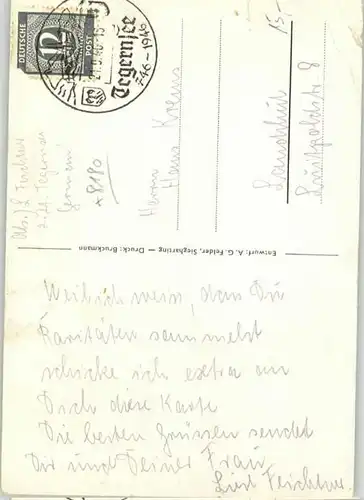 DEUTSCHE
POST
12
Tegernsee
746-1946
15,-
Herrn
Hans Krenss
Landshut
Luitpoldstr. 8
Abs./ L. Feichtner
Gemeni
*8180
Entwurf: A. G. Felder, Siegharting — Druck: Bruckmann
Weil ich weiss, dass Du
Raritäten sammelst
schicke ich extra an
Dich diese Karte
Die besten Grüssen sendet
Dir und Deiner Frau
Lies Feichtner